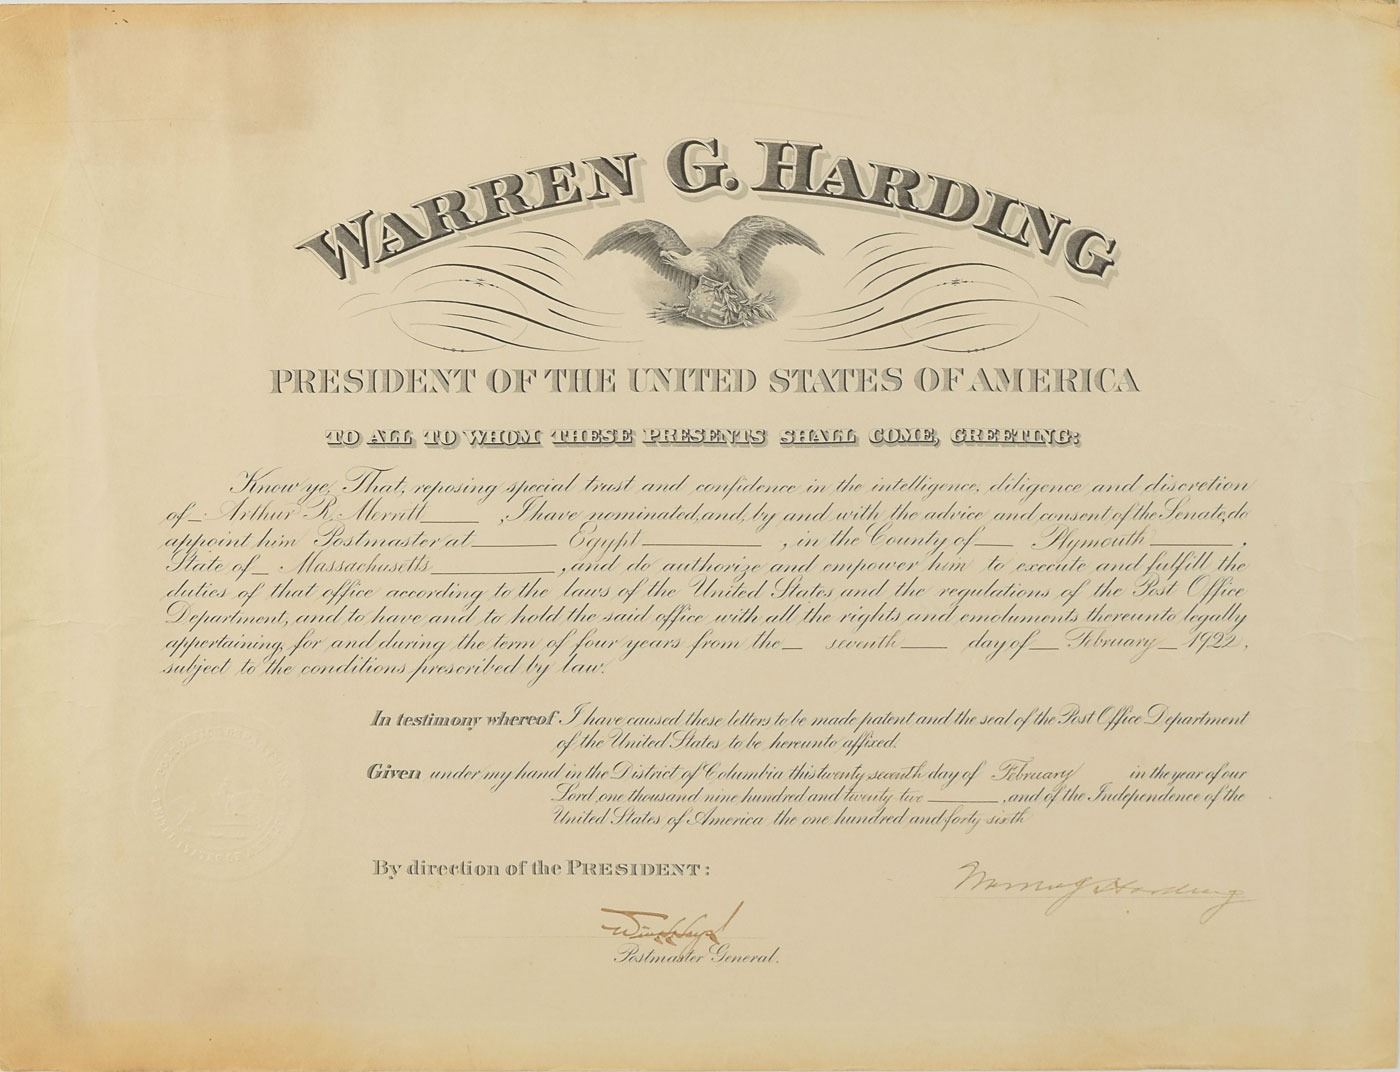 WARREN G. HARDING
PRESIDENT OF THE UNITED STATES OF AMERICA
TO ALL TO WHOM THESE PRESENTS SHALL COME, GREETING:
Know ye, That, reposing special trust and confidence in the intelligence, diligence and discretion
of Arthur R. Merritt, I have nominated, and, by and with the advice and consent of the Senate, do
appoint him Postmaster at Egypt, in the County of Plymouth,
State of Massachusetts, and do authorize and empower him to execute and fulfill the
duties of that office according to the laws of the United States and the regulations of the Post Office
Department, and to have and to hold the said office with all the rights and emoluments thereunto legally
appertaining, for and during the term of four years from the seventh day of February 1922,
subject to the conditions prescribed by law.
In testimony whereof I have caused these letters to be made patent and the seal of the Post Office Department
of the United States to be hereunto affixed.
Given under my hand in the District of Columbia this twenty seventh day of February in the year of our
Lord, one thousand nine hundred and twenty two, and of the Independence of the
United States of America the one hundred and forty sixth
By direction of the PRESIDENT:
Warren G Harding
Will H. Hays
Postmaster General.